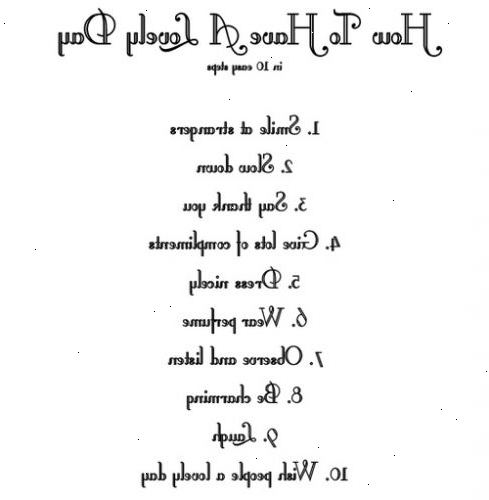 How To Have A Lovely Day
in 10 easy steps
1. Smile at strangers
2. Slow down
3. Say thank you
4. Give lots of compliments
5. Dress nicely
6. Wear perfume
7. Observe and listen
8. Be charming
9. Laugh
10. Wish people a lovely day